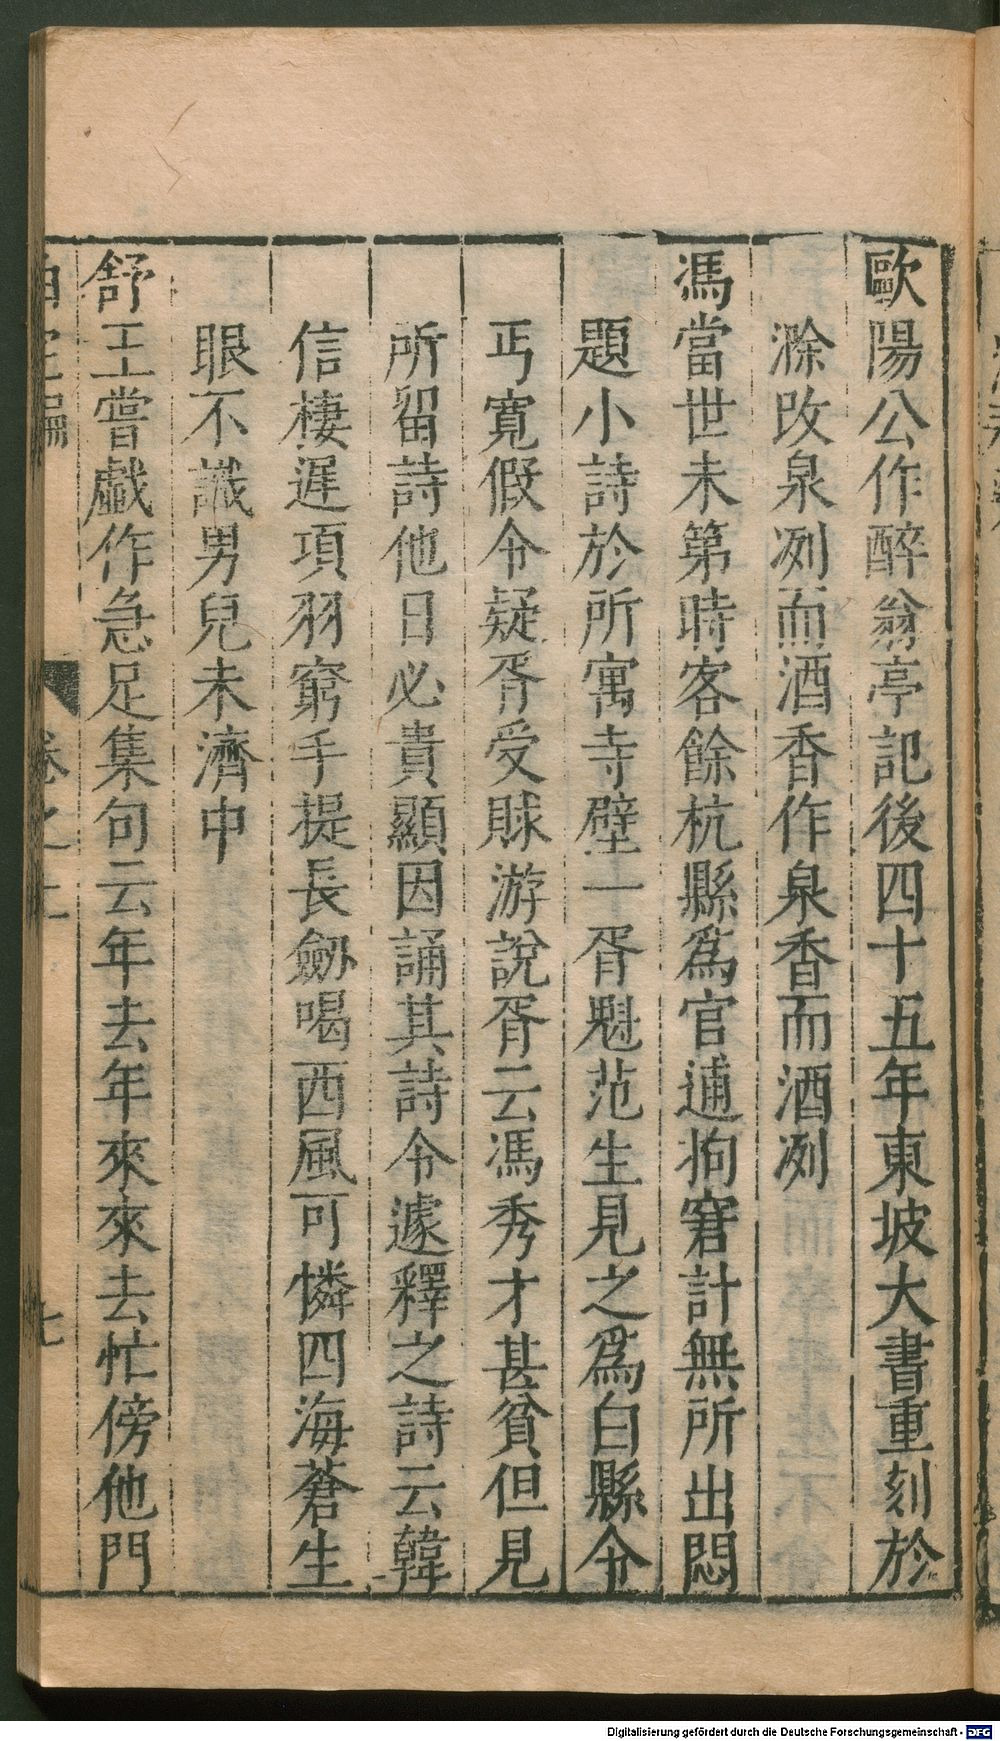 歐陽公作醉翁亭記後四十五年東坡大書重刻於
滁改泉冽而酒香作泉香而酒冽
馮當世未第時客餘杭縣爲官逋拘窘計無所出悶
題小詩於所寓寺壁一胥魁范生見之爲白縣令
丐寬假令疑胥受賕游說胥云馮秀才甚貧但見
所留詩他日必貴顯因誦其詩令遽釋之詩云韓
信棲遲項羽窮手提長劒喝西風可憐四海蒼生
眼不識男兒未濟中
舒王嘗戲作急足集句云年去年來來去忙傍他門
卷之
七
Digitalisierung gefördert durch die Deutsche Forschungsgemeinschaft - DFG